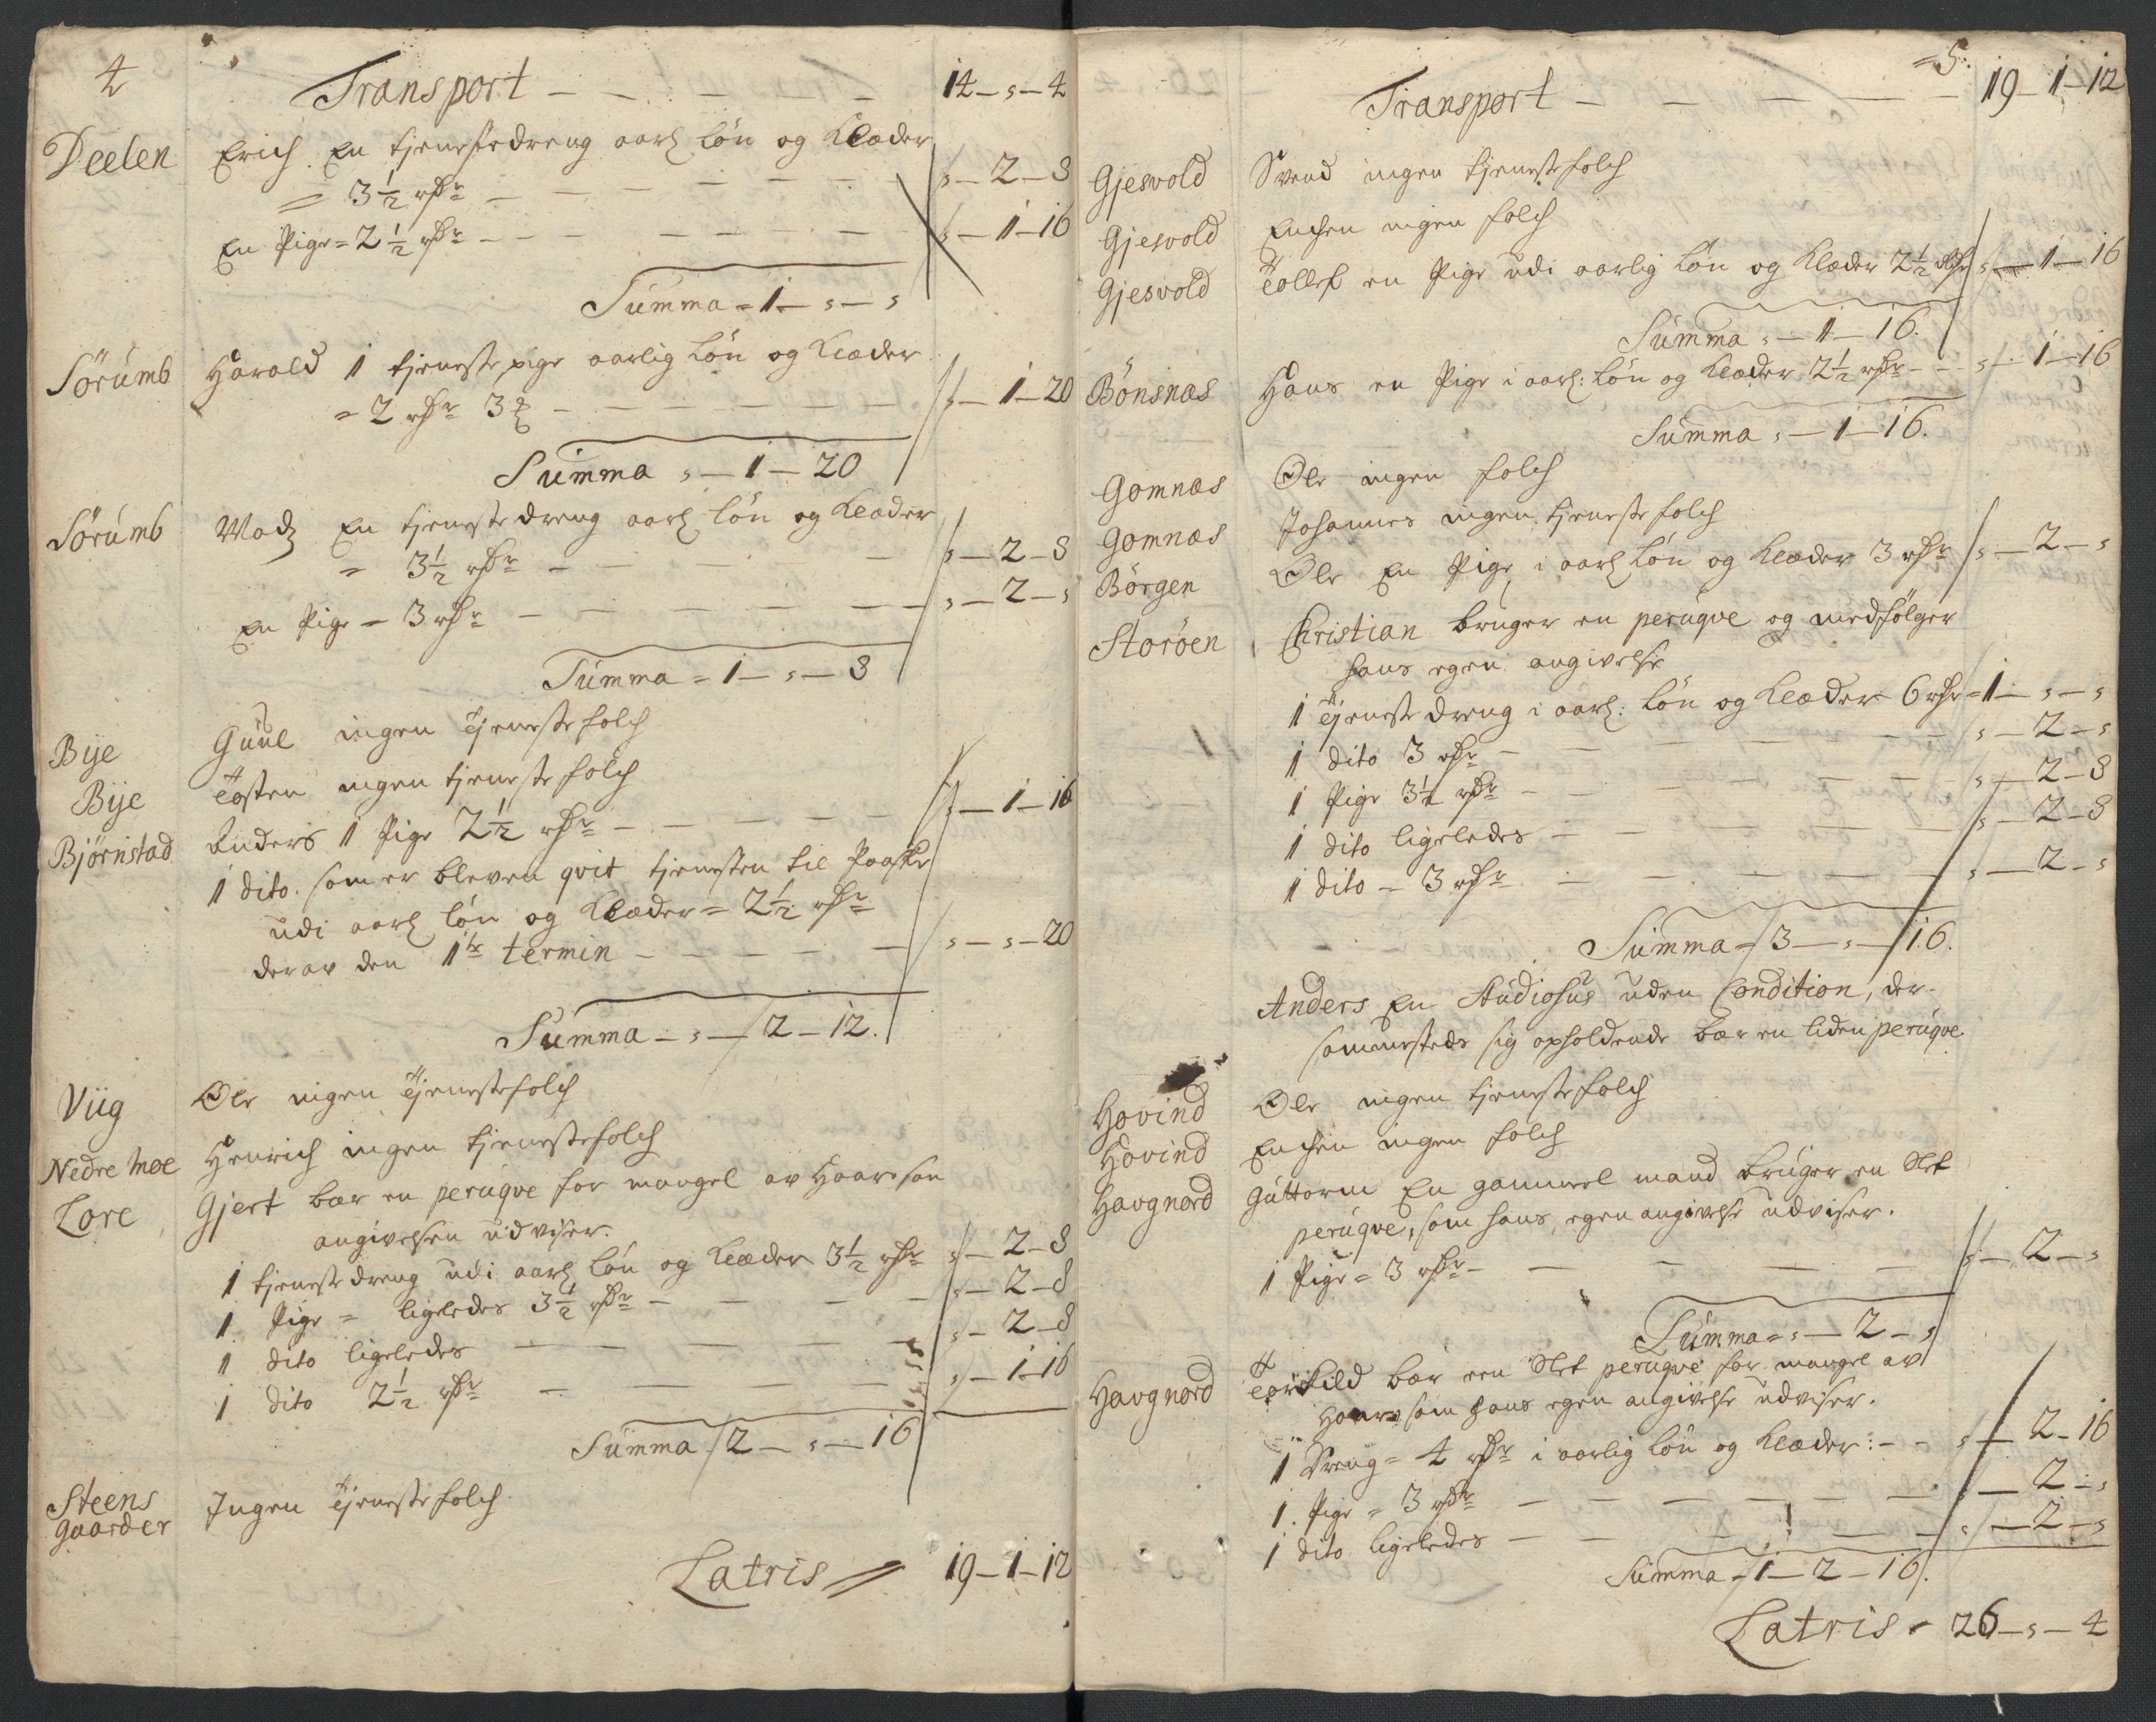 4
Transport – – – – – 14 – „ – 4
Deelen Erich En tjenestedreng aarl løn og Klæder
= 3 1/2 rdr – – – – – „ – 2 – 8
En Pige = 2 1/2 rdr – – – – – „ – 1 – 16
Summa = 1 – „ – „
Sörumb Harald 1 tjeneste pige aarlig løn og Klæder
= 2 rdr 3 – – – – – „ – 1 – 20
Summa „ – 1 – 20
Sörumb Madz En tjenestedreng aarl løn og Klæder
= 3 1/2 rdr – – – – „ – 2 – 8
En Pige = 3 rdr – – – – – „ – 2 – „
Summa = 1 – „ – 8
Bye Guul ingen tjenestefolch
Bye Tosten ingen tjenestefolch
Björnstad Anders 1 Pige 2 1/2 rdr – – – – – „ – 1 – 16
1 dito. som er bleven qvit tjenesten til Paaske
udi aarl løn og Klæder = 2 1/2 rdr
derav den 1te termin – – – – – „ – „ – 20
Summa – „ – 2 – 12.
Viig Ole ingen tjenestefolch
Nedre Moe Henrich ingen tjenestefolch
Lore Gjert bær en peruqve for mangel av Haar som
angivelsen udviser.
1 tjenestedreng udi aarl løn og Klæder 3 1/2 rdr „ – 2 – 8
1 Pige = ligeledes 3 1/2 rdr – – – – „ – 2 – 8
1 dito ligeledes – – – – – „ – 2 – 8
1 dito 2 1/2 rdr – – – – „ – 1 – 16
Summa 2 – „ – 16
Steens
Gaarder Ingen tjenestefolch
Latris = 19 – 1 – 12
5.
Transport – – – – – 19 – 1 – 12
Gjesvold Svend ingen tjenestefolch
Gjesvold Enchen ingen folch
Gjesvold Tollef en Pige udi aarlig løn og Klæder 2 1/2 rdr „ – 1 – 16
Summa „ – 1 – 16.
Bönsnæs Hans en Pige i aarl: løn og Klæder 2 1/2 rdr – – „ – 1 – 16
Summa „ – 1 – 16.
Gomnæs Ole ingen folch
Gomnæs Johannes ingen tjenestefolch
Börgen Ole En Pige i aarl løn og Klæder 3 rdr „ – 2 – „
Storöen Christian bruger en peruqve og medfölger
hans egen angivelse
1 tjenestedreng i aarl: løn og Klæder 6 rdr = 1 – „ – „
1 dito 3 rdr – – – – – „ – 2 – „
1 Pige 3 1/2 rdr – – – – – „ – 2 – 8
1 dito ligeledes – – – – – „ – 2 – 8
1 dito = 3 rdr – – – – – „ – 2 – „
Summa = 3 – „ – 16.
Anders En Studiosus uden Condition, der-
sammesteds sig opholdende bær en liden peruqve
Hovind Ole ingen tjenestefolch
Hovind Enchen ingen folch
Havgnord Guttorm En gammel mand bruger en slet
peruqve, som hans egen angivelse udviser.
1 Pige = 3 rdr – – – – – „ – 2 – „
Summa = „ – 2 – „
Havgnord Torkild bær een slet peruqve for mangel av
Haar som hans egen angivelse udviser.
1 Dreng = 4 rdr i aarlig løn og Klæder: – – „ – 2 – 16
1. Pige = 3 rdr – – – – – „ – 2 – „
1 dito ligeledes – – – – – „ – 2 – „
Summa = 1 – 2 – 16.
Latris = 26 – „ – 4